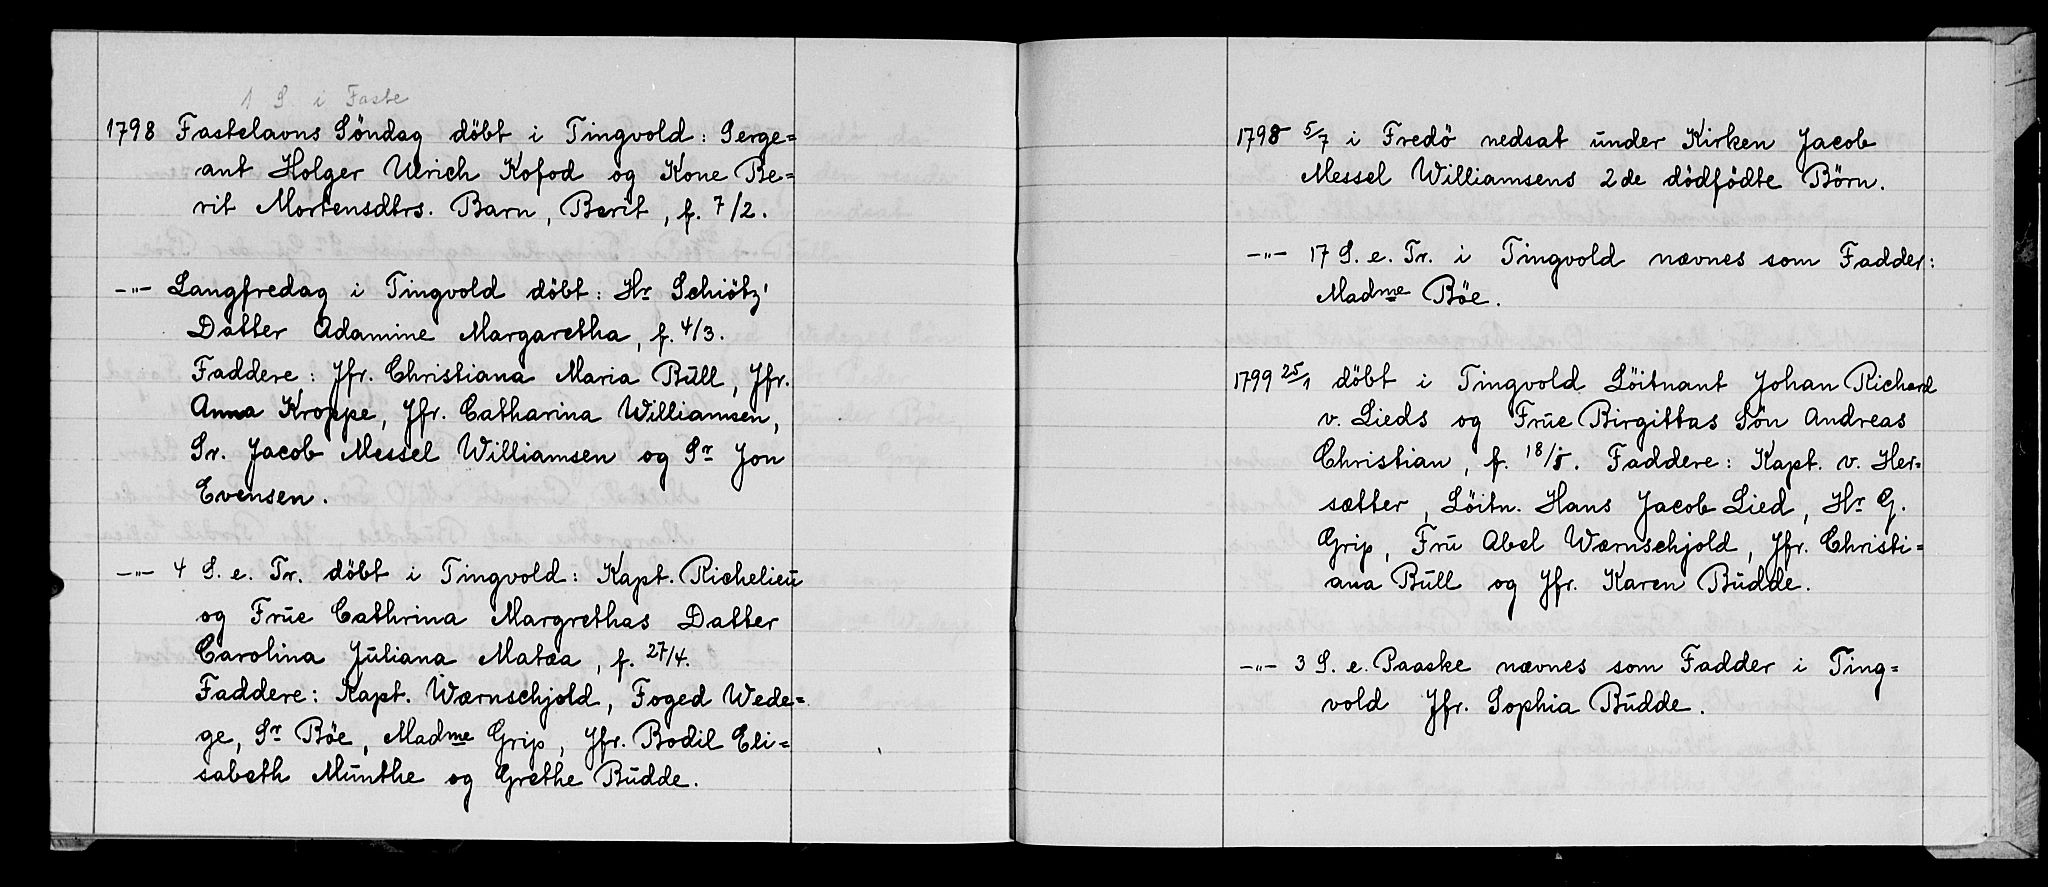 1 S. i Faste
1798 Fastelavns Söndag döbt i Tingvold: Serge=
ant Holger Ulrich Kofod og Kone Be=
rit Mortensdtrs. Barn, Berit, f. 7/2.
-„- Langfredag i Tingvold döbt: Hr Schiötz'
Datter Adamine Margaretha, f. 4/3.
Faddere: Jfr. Christiana Maria Bull, Jfr.
Anna Kroppe, Jfr. Catharina Williamsen,
Sr. Jacob Messel Williamsen og Sr Jon
Evensen.
-„- 4 S. e. Tr. döbt i Tingvold: Kapt. Richelieu
og Frue Cathrina Margrethas Datter
Carolina Juliana Matæa, f. 27/4.
Faddere: Kapt. Wærnschjold, Foged Wede=
ge, Sr Böe, Madme Grip, Jfr. Bodil Eli=
sabeth Munthe og Grethe Budde.
1798 5/7 i Fredö nedsat under Kirken Jacob
Messel Williamsens 2de dödfödte Börn.
-„- 17 S. e. Tr. i Tingvold nævnes som Fadder:
Madme Böe.
1799 25/1 döbt i Tingvold Löitnant Johan Richard
v. Lieds og Frue Birgittas Sön Andreas
Christian, f. 18/1. Faddere: Kapt. v. Her=
sætter, Löitn. Hans Jacob Lied, Hr G.
Grip, Fru Abel Wærnschjold, Jfr. Christi=
ana Bull og Jfr. Karen Budde.
-„- 3 S. e. Paaske nævnes som Fadder i Ting=
vold Jfr. Sophia Budde.